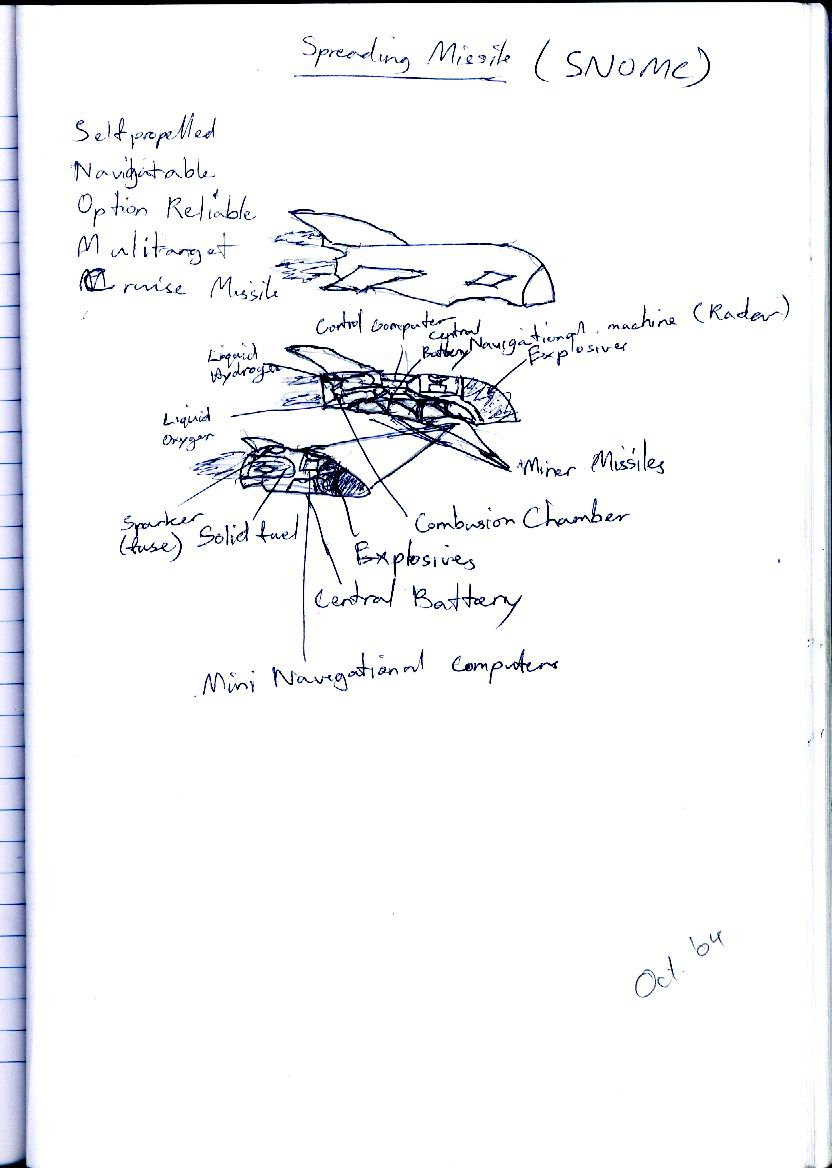 Spreading Missile (SNOMC)
Selfpropelled
Navigatable
Option Reliable
Mulitarget
Cruise Missile
Control Computer
Central
Battery
Navigational machine (Radar)
Explosives
Liquid
Hydrogen
Liquid
Oxygen
Miner Missiles
Sparker
(fuse)
Solid fuel
Combusion Chamber
Explosives
Central Battery
Mini Navigational Computers
Oct. 64